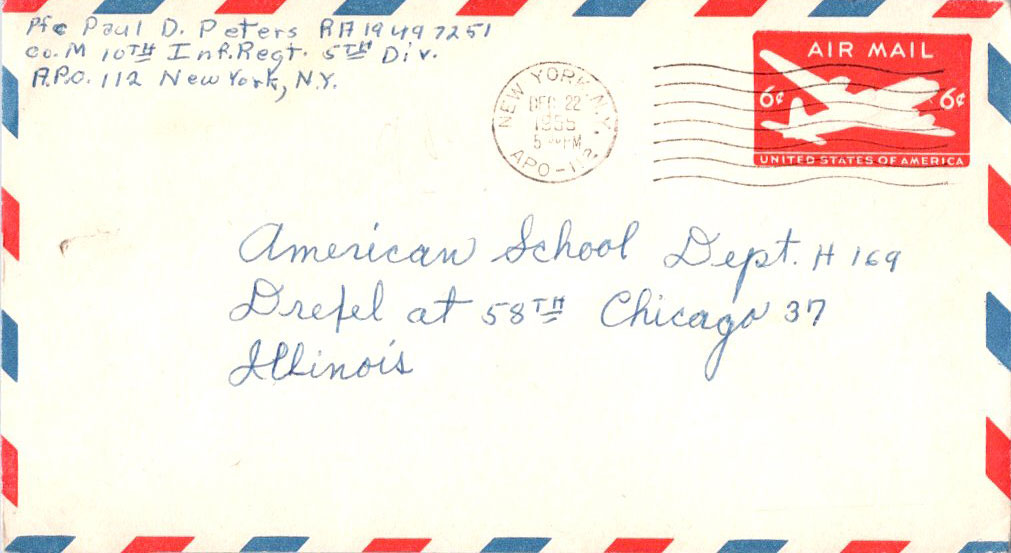 Pfc Paul D. Peters RA 19497251
Co. M 10TH Inf. Regt. 5TH Div.
A.P.O. 112 New York, N.Y.
NEW YORK, N.Y.
DEC 22
1955
5 PM
APO-112
AIR MAIL
6¢ 6¢
UNITED STATES OF AMERICA
American School Dept. H 169
Drexel at 58TH Chicago 37
Illinois